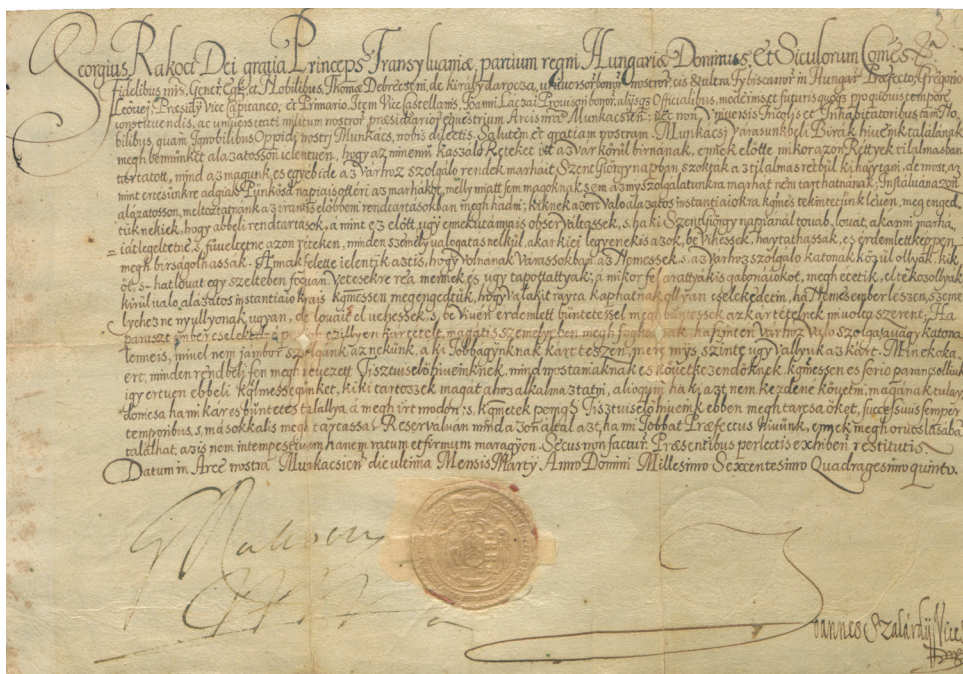 Georgius Rakoci Dei gratia Princeps Transylvaniæ, partium regni Hungariæ Dominus, et Siculorum Comes
Fidelibus nris, Gener: Egr: et Nobilibus, Thomæ Debreczeni, de Királydarocza, universor bonor nostror, cis & ultra Tybiscanor in Hungar: Præfecto, Gregorio
Præsidij Vice Capitaneo, et Primario Item Vice Castellanis, Joanni Laczai Provisori bonor. alijsqz Officialibus, modernis et futuris quoqz pro quovis tempore
constituendis, ac universitati militum nostror præsidiarior equestrium Arcis nræ Munkacsien: nec non, Universis Incolis et Inhabitatoribus tam No-
bilibus, quam Ignobilibus Oppidi nostri Munkács, nobis dilectis. Salutem et gratiam nostram. Munkácsi Városunkbeli Birák hiveink találának
megh bennünket alázatosson jelentvén, hogy az minémü kaszáló Réteket itt az Var körül birnának, ennek elötte mikor azon Réttyek tilalmasban
tartatott, mind az magunk, es egyebide az Varhoz szolgáló rendek marháit Szent György napban szokták az tilalmas rétbül ki hajtani, de most, az
mint ertésünkre adgiák Pünkösd napiaig sottéri az marhákot, melly miatt sem magoknak, sem az my szolgalatunkra marhát nem tarthatnának; Instálván azon
alázatosson, meltoztatnánk az iránt is elöbbeni rendtartásokban megh hadni; kiknek azért Valo alazatos instantiaiokra kgmes tekintetünk leven, meg enged-
tük nekiek, hogy abbeli rendtartások, a mint ez elött, ugy ennekutánna is observáltassék, s ha ki Szent György napianál tovab, lovát, akármi marhá-
iát legeltetne, s füveltetne azon réteken, minden személy valogatas nelkül, akar kiej legyenek is azok, be Vihessek, haytathassák, es érdemlett keppen
megh birságolhassák. Annak felette jelentik azt is, hogy Volnának Varassokban az Nemessek, s az Varhoz szolgáló katonák közül ollyak, kik
öt, s hat lovat egy szeltében fogván Vetésekre reá mennek, es ugy tapottattyák; a mikor fel arattyák is gabonáiokot, meghetetik, eltekozollyák
kirül való alázatos instantiaiokra is kgmessen megengedtük, hogy Valakit rayta kaphatnak ollyan cselekedetin, ha Nemes ember leszen, szeme-
lyehez ne nyullyonak ugyan, de lovait el uehessék, s be vivén érdemlett büntetéssel megh büntessek az kár tételnek mivolta szerent; Ha
paraszt ember cselekedi, a penigh ezillyen kártételt, magát is személyeben megh foghassanak, ha szinten Varhoz Való szolga, auagy katona
lenne is, mivel nem jámbor szolgánk az nekünk, a ki Jobbagyinknak kart teszen, mert mys szinte ugy Vallyuk az kárt. Minekoka-
ert, minden rendbeli fen megh nevezett Tisztviselö hiveinknek, mind mostaniaknak es következendöknek kgmessen es serio parancsollyuk
igy ertven ebbeli kgmessegünket, ki ki tartozzék magát ahoz alkalmaztatni, alioquin ha ki azt nem kezdene követni, magának tulay-
donicsa ha mi kár es büntetes talállya, a megh irt modon; s, kgmetek penigh Tisztviselö hiveink ebben megh tarcsa öket, successivis semper
temporibus, s másokkal is meg tartassa. Reservalván mind azonáltal azt, ha mi Jobbat Præfectus hivünk, ennek megh orvoslásában
találhat, az is nem intempestivum hanem ratum et firmum maragyon. Secus non factur. Præsentibus perlectis exhiben restitutis.
Datum in Arce nostra Munkacsien: die ultima Mensis Martij Anno Domini Millesimo Sexcentesimo Quadragesimo quinto.
G Rakoczi
Joannes Szalárdij Vice